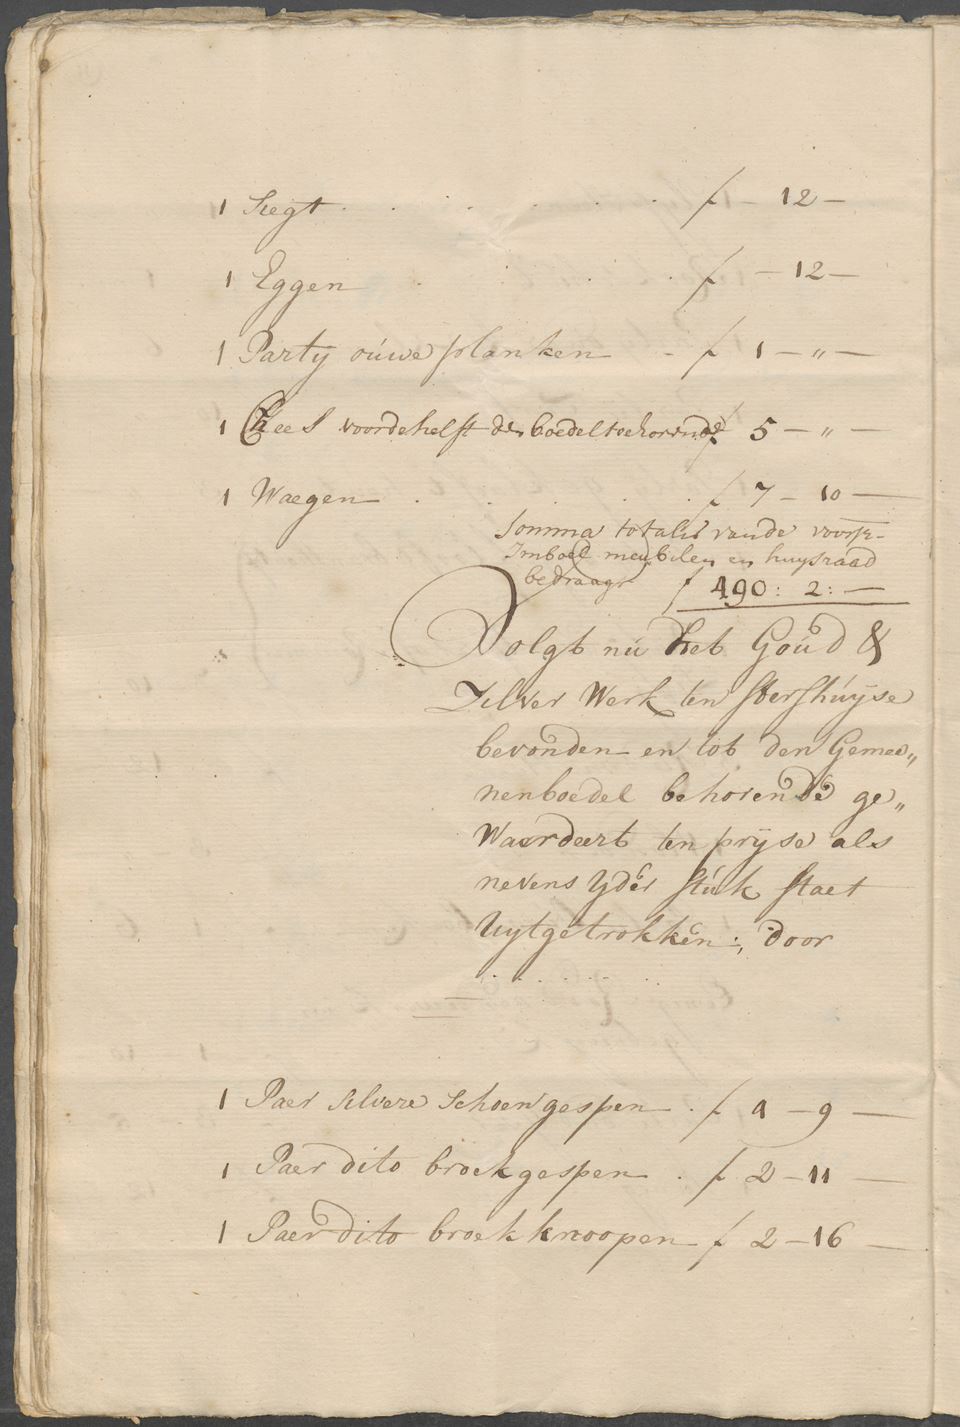 1 Segt . . . . . . ƒ — 12 —
1 Eggen . . . . ƒ — 12 —
1 Party oúwe planken - ƒ 1 — „ —
1 Chees voordehelft den boedel toehorende ƒ 5 — „ —
1 Waegen . . . . . ƒ 7 — 10 —
Somma totalis vande voorsz-
Imboel meubilen en huysraad
bedraagt ƒ 490 : 2 : —
Volgt nú het Goúd &
Silver Werk ten sterfhúijse
bevonden en tot den Gemee„
nenboedel behorende ge„
Waerdeert ten prijse als
nevens Yder stúk staet
Uytgetrokken:, door
1 Paer Silvere Schoen gespen . ƒ 9 — 9 —
1 Paer dito broek gespen . ƒ 2 — 11 —
1 Paer dito broek knoopen ƒ 2 — 16 —